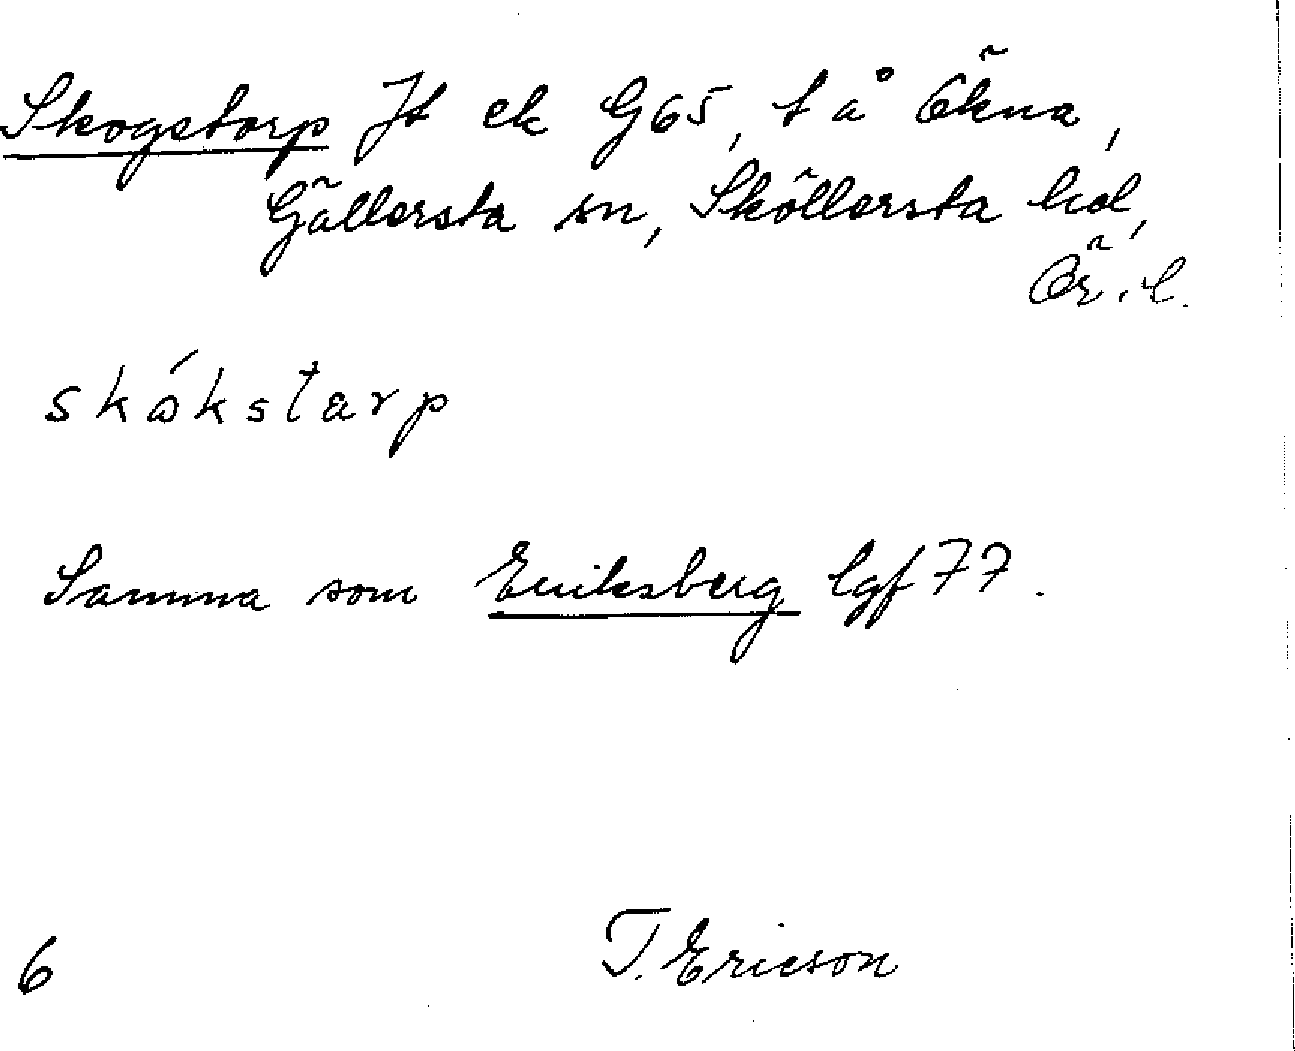 Skogstorp Jt ek G65, t å Ökna,
Gällersta sn, Sköllersta hd,
Ör. l.
skákstarp
Samma som Eriksberg lgf 77.
6 T. Ericson